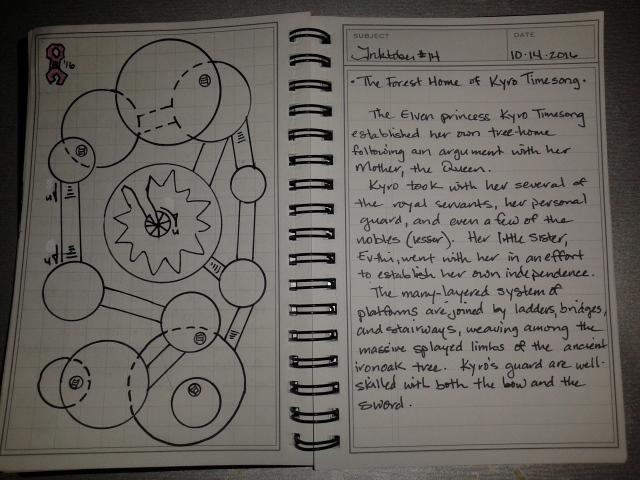 '16
SUBJECT
DATE
Inktober #14
10-14-2016
• The Forest Home of Kyro Timesong •
The Elven princess Kyro Timesong
established her own tree-home
following an argument with her
Mother, the Queen.
Kyro took with her several of
the royal servants, her personal
guard, and even a few of the
nobles (lesser). Her little sister,
went with her in an effort
to establish her own independence.
The many-layered system of
platforms are joined by ladders, bridges,
and stairways, weaving among the
massive splayed limbs of the ancient
ironoak tree. Kyro's guard are well-
skilled with both the bow and the
sword.